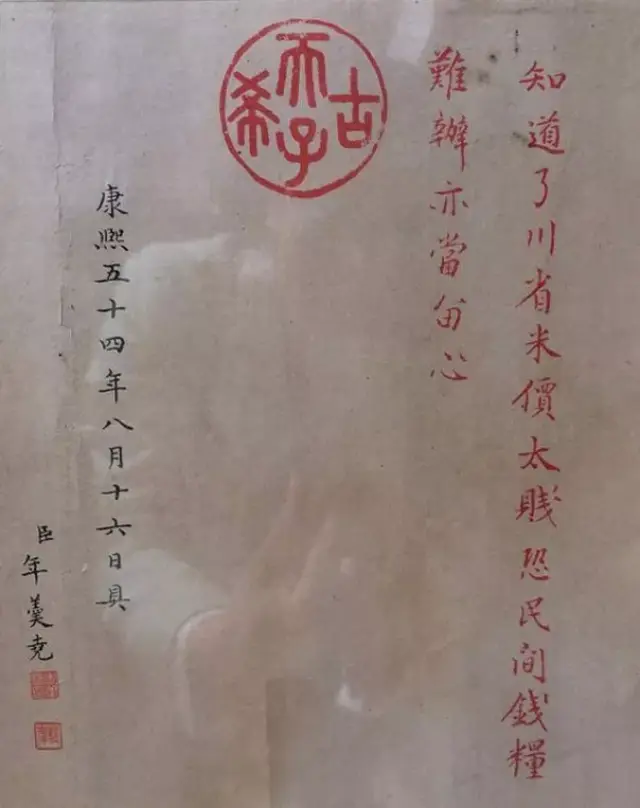 知道了川省米價太賤恐民間錢糧
難辦亦當留心
古希天子
康熙五十四年八月十六日具
臣年羹尭